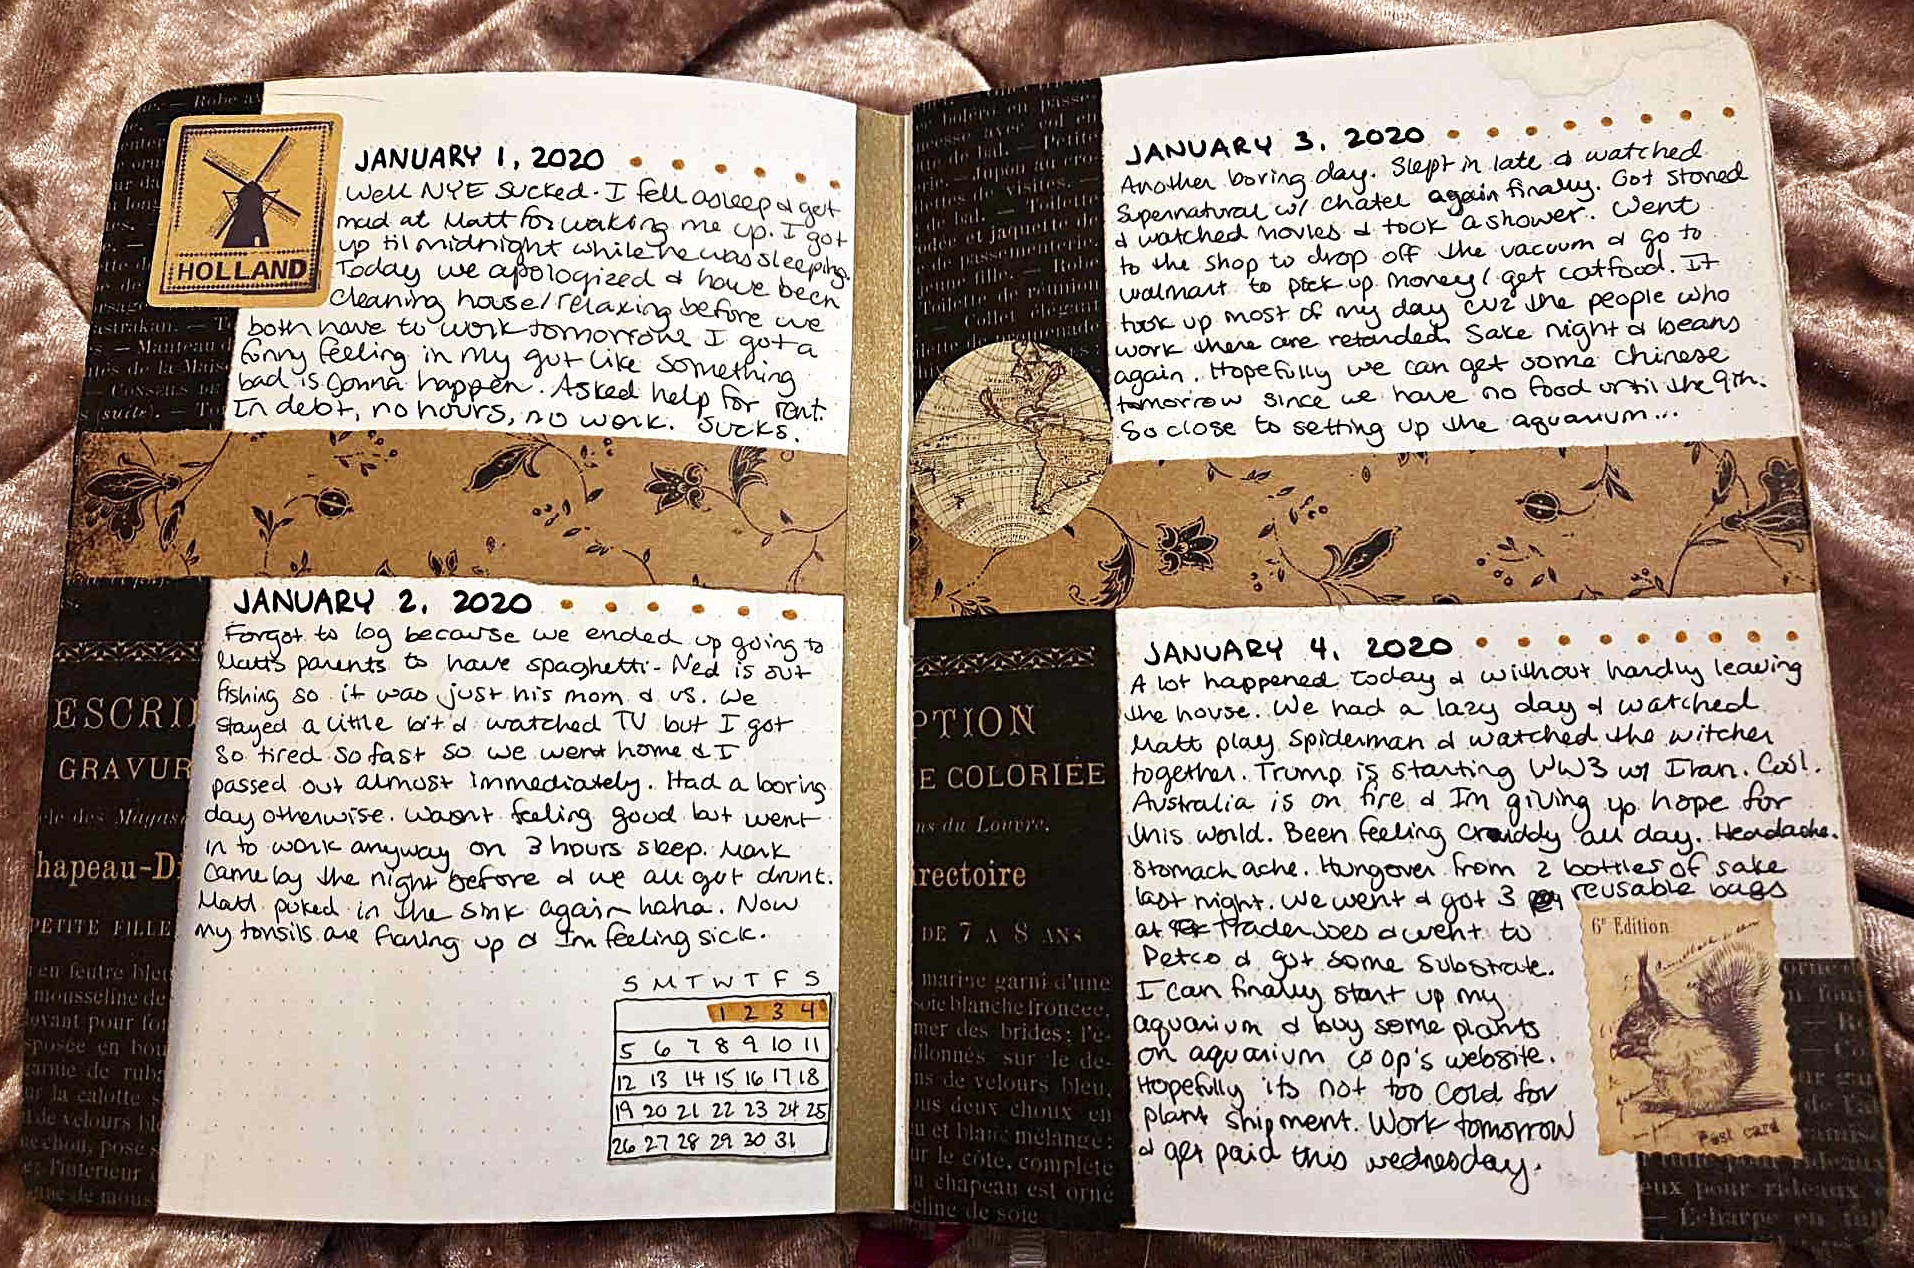 HOLLAND
JANUARY 1, 2020
Well NYE sucked. I fell asleep & got
mad at Matt for waking me up. I got
up til midnight while he was sleeping.
Today we apologized & have been
cleaning house/relaxing before we
both have to work tomorrow. I got a
funny feeling in my gut like something
bad is gonna happen. Asked help for rent.
In debt, no hours, no work. Sucks.
JANUARY 2, 2020
Forgot to log because we ended up going to
Matt's parents to have spaghetti - Ned is out
fishing so it was just his mom & us. We
stayed a little bit & watched TV but I got
so tired so fast so we went home & I
passed out almost immediately. Had a boring
day otherwise. Wasn't feeling good but went
in to work anyway on 3 hours sleep. Mark
came by the night before & we all got drunk.
Matt puked in the sink again haha. Now
my tonsils are flaring up & Im feeling sick.
S M T W T F S
1 2 3 4
5 6 7 8 9 10 11
12 13 14 15 16 17 18
19 20 21 22 23 24 25
26 27 28 29 30 31
ESCRI
GRAVUR
hapeau-Di
PETITE FILLE
en feutre bleu
mousseline de
JANUARY 3, 2020
Another boring day. Slept in late & watched
Supernatural w/ Chatel again finally. Got stoned
& watched movies & took a shower. Went
to the shop to drop off the vacuum & go to
walmart to pick up money/get catfood. It
took up most of my day cuz the people who
work there are retarded. Sake night & beans
again. Hopefully we can get some chinese
tomorrow since we have no food until the 9th.
So close to setting up the aquarium...
JANUARY 4, 2020
A lot happened today & without hardly leaving
the house. We had a lazy day & watched
Matt play Spiderman & watched the witcher
together. Trump is starting WW3 w/ Iran. Cool.
Australia is on fire & Im giving up hope for
this world. Been feeling cruddy all day. Headache.
Stomach ache. Hungover from 2 bottles of sake
last night. We went & got 3 reusable bags
at Trader Joes & went to
Petco & got some substrate.
I can finally start up my
aquarium & buy some plants
on aquarium co op's website.
Hopefully its not too cold for
plant shipment. Work tomorrow
& get paid this wednesday.
6e Edition
Post card
PTION
E COLORIÉE
ns du Louvre.
irectoire
DE 7 A 8 ANS
marine garni d'une
soie blanche froncée,
mer des brides; l'é-
illonnés sur le de-
ns de velours bleu,
us deux choux en
u et blanc mélangé;
ur le côté, complète
u chapeau est orné
eline de soie